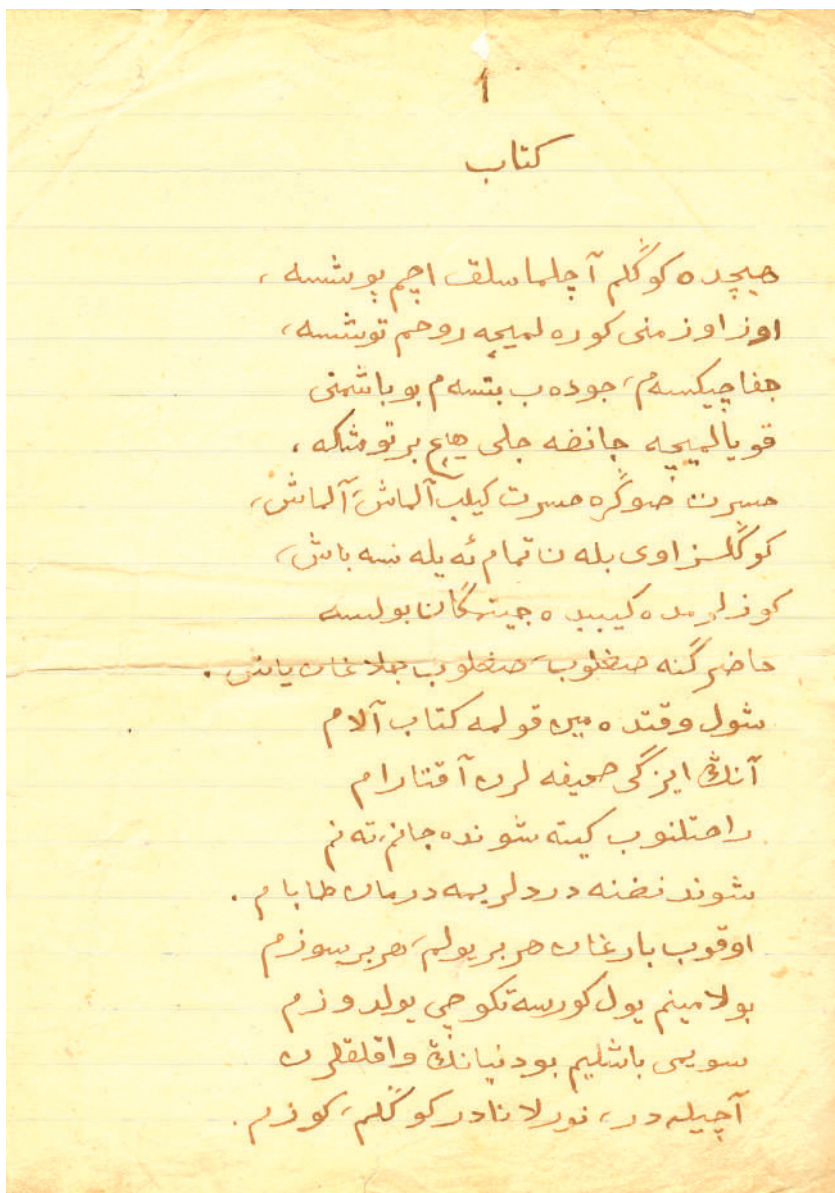 1
كتاب
هیچده كوڭلم آچلماسلق اچم پوشسه ،
اوز اوزمنی كوره لمیچه روحم توشسه،
جفا چیكسه م، جوده ب بتسه م بو باشمنی
قویالمیچه جانغه جلی هیچ بر توشكه ،
حسرت صوڭره حسرت كیلب آلماش، آلماش،
كوڭلسز اوی بله ن تمام ئه یله نسه باش،
كوزلرمده كیبیده جیتهگان بولسه
حاضر گنه صغلوب، صغلوب جلاغان یاش .
شول وقتده مین قولمه كتاب آلام
آنڭ ایزگی صحیفه لرن آقتارام
راحتلنوب كیته شونده جانم، ته نم
شوندنغنه دردلریمه درمان طابام .
اوقوب بارغان هر بر یولم، هر بر سوزم
بولا مینم یول كورسه تكوچی یولدوزم
سویمی باشلیم بو دنیانڭ واقلقلرن
آچیله در، نورلانادر كوڭلم، كوزم .